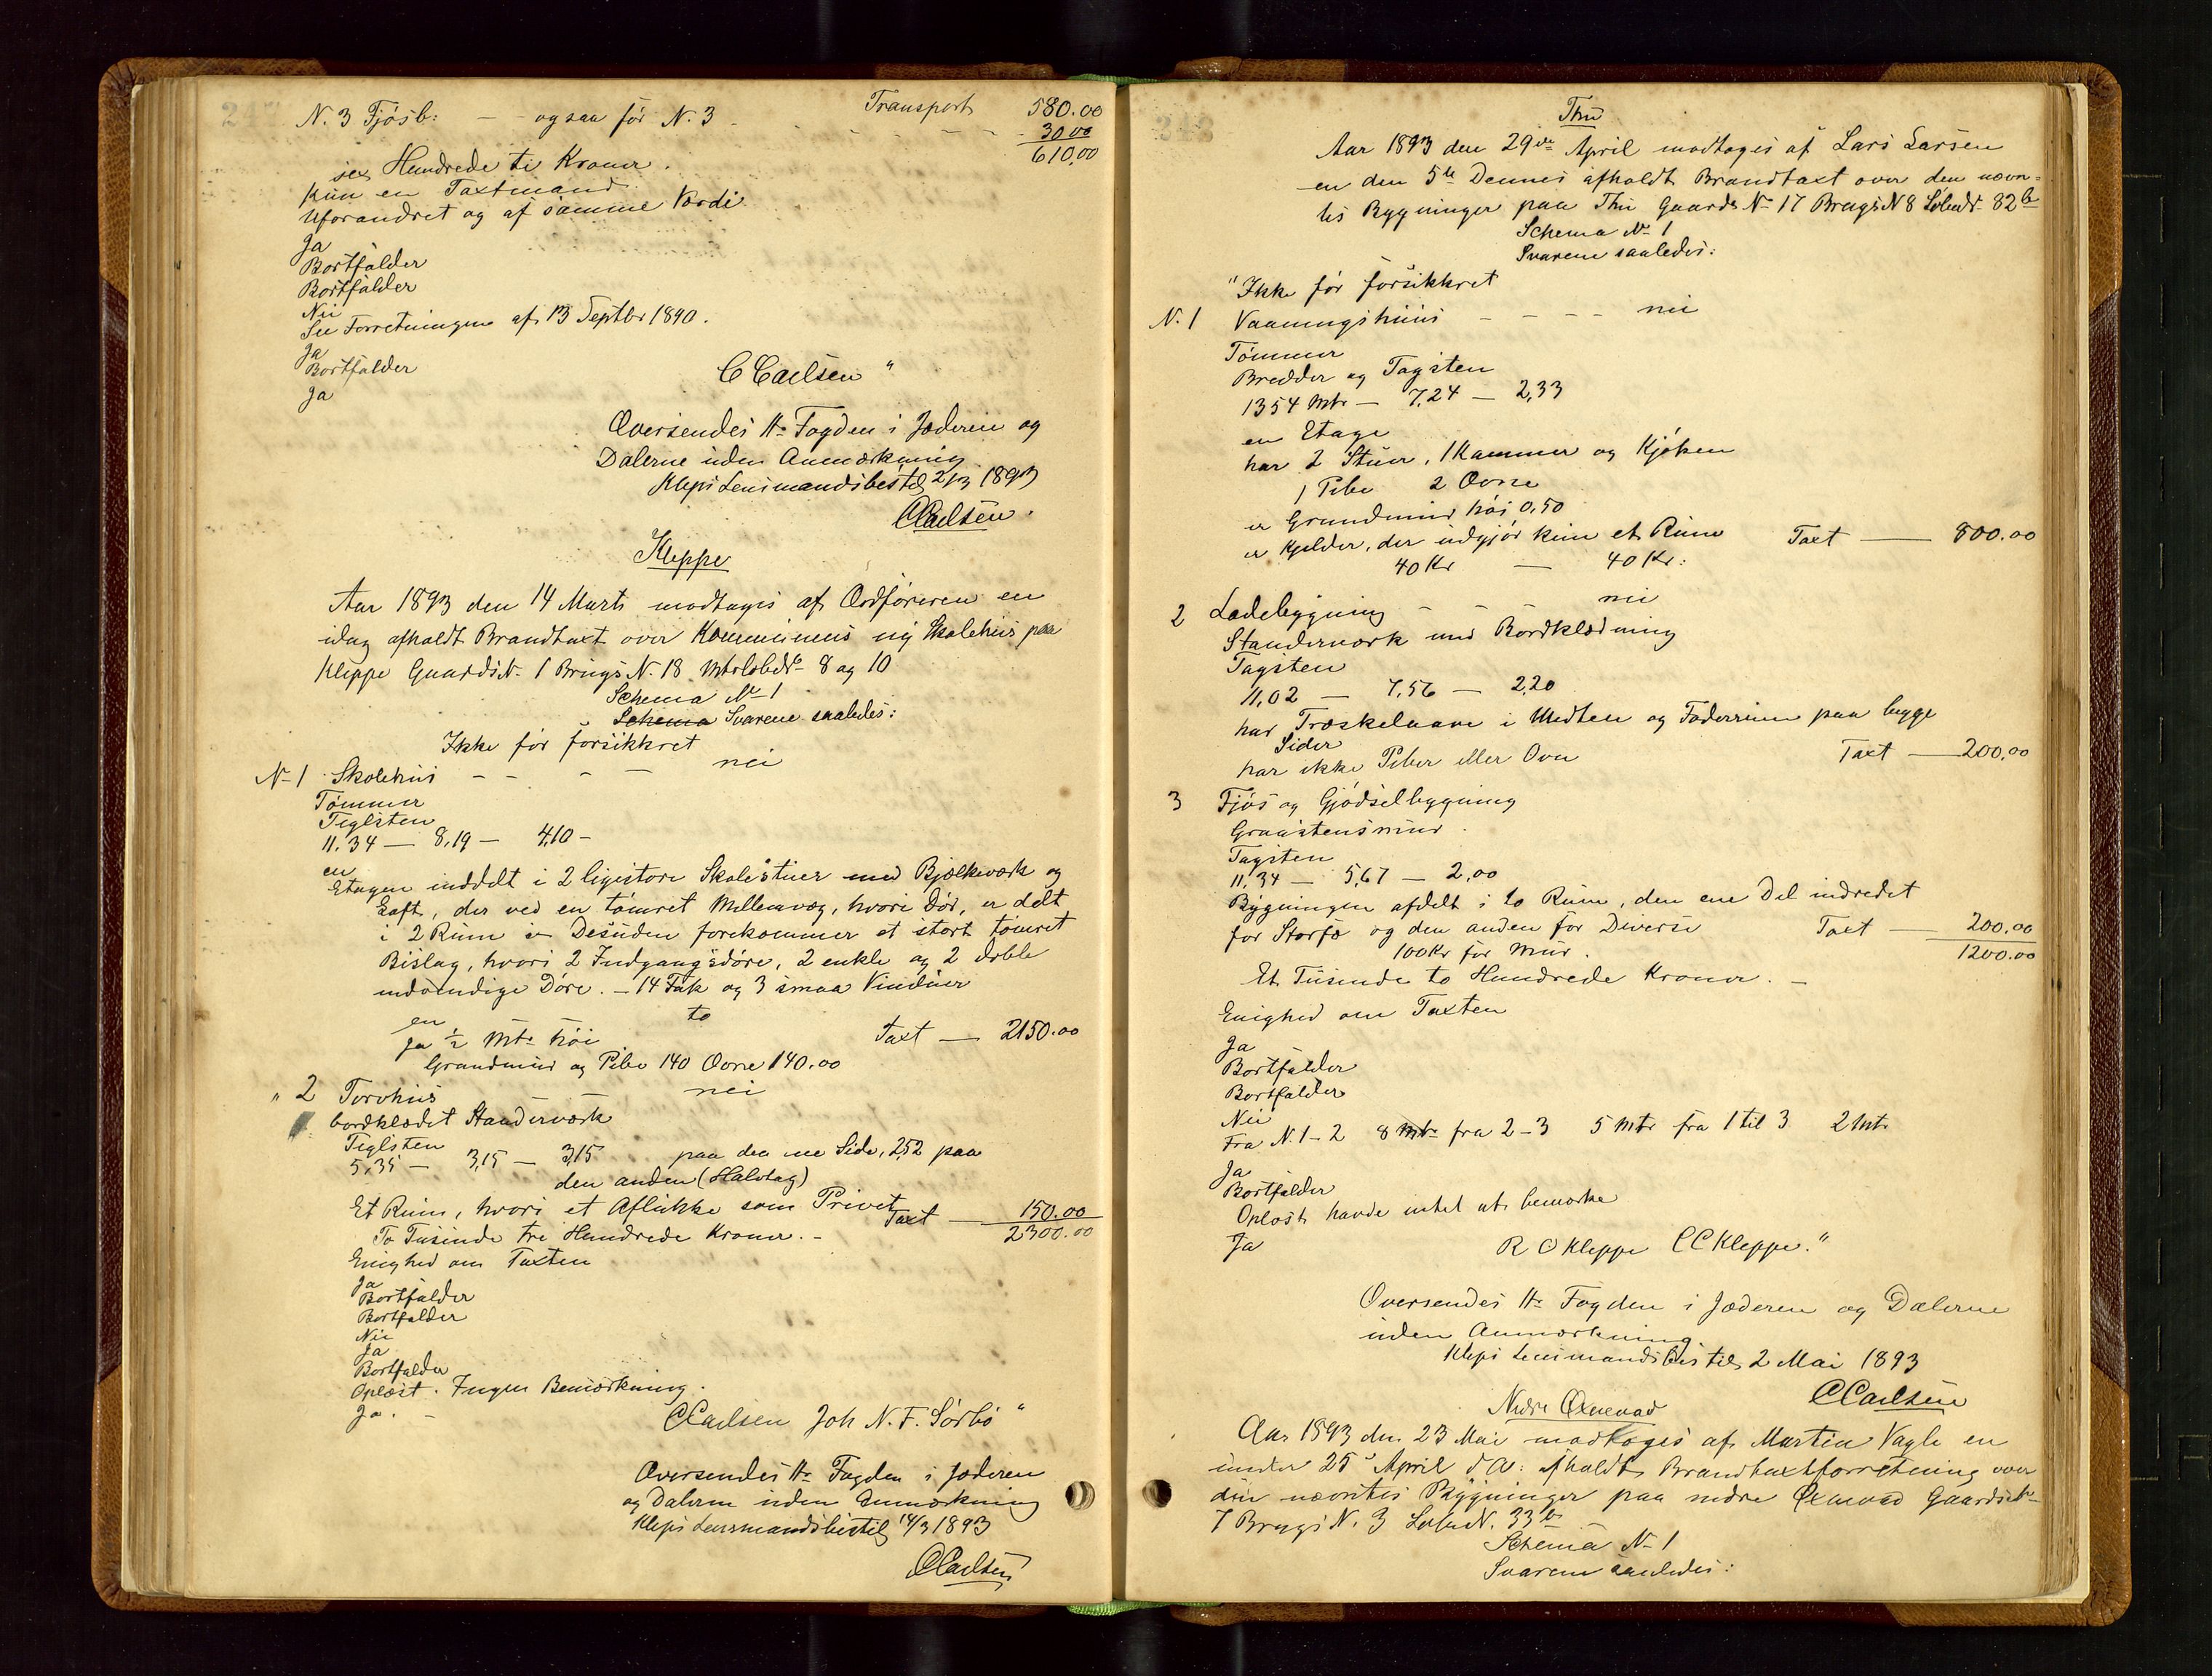 247
N. 3 Fjösb: — - ogsaa før N. 3 - Transport 580.00
- 30.00
610,00
sex Hundrede ti Kroner.
Kun en Taxtmand
Uforandret og af samme Værdi
Ja
Bortfalder
Bortfalder
Nei
See Forretningen af 13 Septbr 1890.
Ja
Bortfalder
Ja
C Carlsen "
Oversendes Hr Fogden i Jæderen og
Dalerne uden Anmærkning
Kleps Lensmandsbestil 2/3 1893
CCarlsen.
Kleppe
Aar 1893 den 14 Marts modtages af Ordføreren en
idag afholdt Brandtaxt over Kommunens ny Skolehus paa
Kleppe Gaards N. 1 Brugs N. 18 MtrløbeNo 8 og 10
Schema No 1
Schema Svarene saaledes:
Ikke før forsikkret
N-1 Skolehus - - - - nei
Tømmer
Teglsten
11,34 — 8,19 — 4,10 -
en
Etagen inddelt i 2 ligestore Skolestuer med Bjælkeværk og
Loft, der ved en tømret Mellemvæg, hvori Dør, er delt
i 2 Rum — Desuden forekommer et stort tømret
Bislag, hvori 2 Indgangsdøre, 2 enkle og 2 doble
indvendige Døre. - 14 Fak og 3 smaa Vinduer
en to
Ja ½ Mtr høi Taxt — 2150.00
Grundmur og Pibe 140 Ovne 140.00
" 2 Torvhus nei
bordklædet Standerværk
Teglsten
5,35 — 3,15 — 3,15 paa den ene Side, 2,52 paa
den anden (Halvtag)
Et Rum, hvori et Aflukke som Privet
Taxt — 150.00
To Tusinde tre Hundrede Kroner. - 2300.00
Enighed om Taxten
Ja
Bortfalder
Bortfalder
Nei
Ja
Bortfalder
Oplæst. Ingen Bemærkning.
Ja. -
CCarlsen Joh N. F. Sørbö "
Oversendes Hr Fogden i Jæderen
og Dalerne uden Anmærkning
Kleps Lensmandsbestil 14/3 1893
CCarlsen
248
Thu
Aar 1893 den 29de April modtages af Lars Larsen
en den 5te Dennes afholdt Brandtaxt over den nævn-
tes Bygninger paa Thu Gaards No 17 Brugs N 8 LøbeNr 82b
Schema No 1
Svarene saaledes:
"Ikke før forsikkret
N. 1 Vaaningshuus - - - - nei
Tømmer
Brædder og Tagsten
1354 Mtr — 7,24 — 2,33
en Etage
har 2 Stuer, 1 Kammer og Kjøken
1 Pibe 2 Ovne
er Grundmur høi 0,50
er Kjelder, der udgjør kun et Rum Taxt — 800.00
40 Kr — 40 Kr:
2 Ladebygning - - - nei
Standerværk med Bordklædning
Tagsten
11,02 — 7,56 — 2,20
har Træskelaave i Midten og Foderrum paa begge
Sider
har ikke Piber eller Ovn Taxt — 200,00
3 Fjös og Gjödselbygning
Graastensmur
Tagsten
11,34 — 5,67 — 2,00
Bygningen afdelt i to Rum, den ene Del indredet
for Storfæ og den anden for Diverse Taxt — 200.00
100 Kr for Mur. 1200.00
Et Tusinde to Hundrede Kroner. -
Enighed om Taxten
Ja
Bortfalder
Bortfalder
Nei
Fra N. 1-2 8 Mtr fra 2-3 5 Mtr fra 1 til 3 2 Mtr
Ja
Bortfalder
Oplæst havde intet at bemærke
Ja R O Kleppe CC Kleppe."
Oversendes Hr Fogden i Jæderen og Dalerne
uden Anmærkning.
Kleps Lensmandsbestil 2 Mai 1893
CCarlsen
Nedre Öxnevad
Aar 1893 den 23 Mai modtoges af Martin Vagle en
under 25 April d A: afholdt Brandtaxtforretning over
den nævntes Bygninger paa nedre Öxnevad Gaards No
7 Brugs N. 3 LøbeN. 33b
Schema N-1
Svarene saaledes: